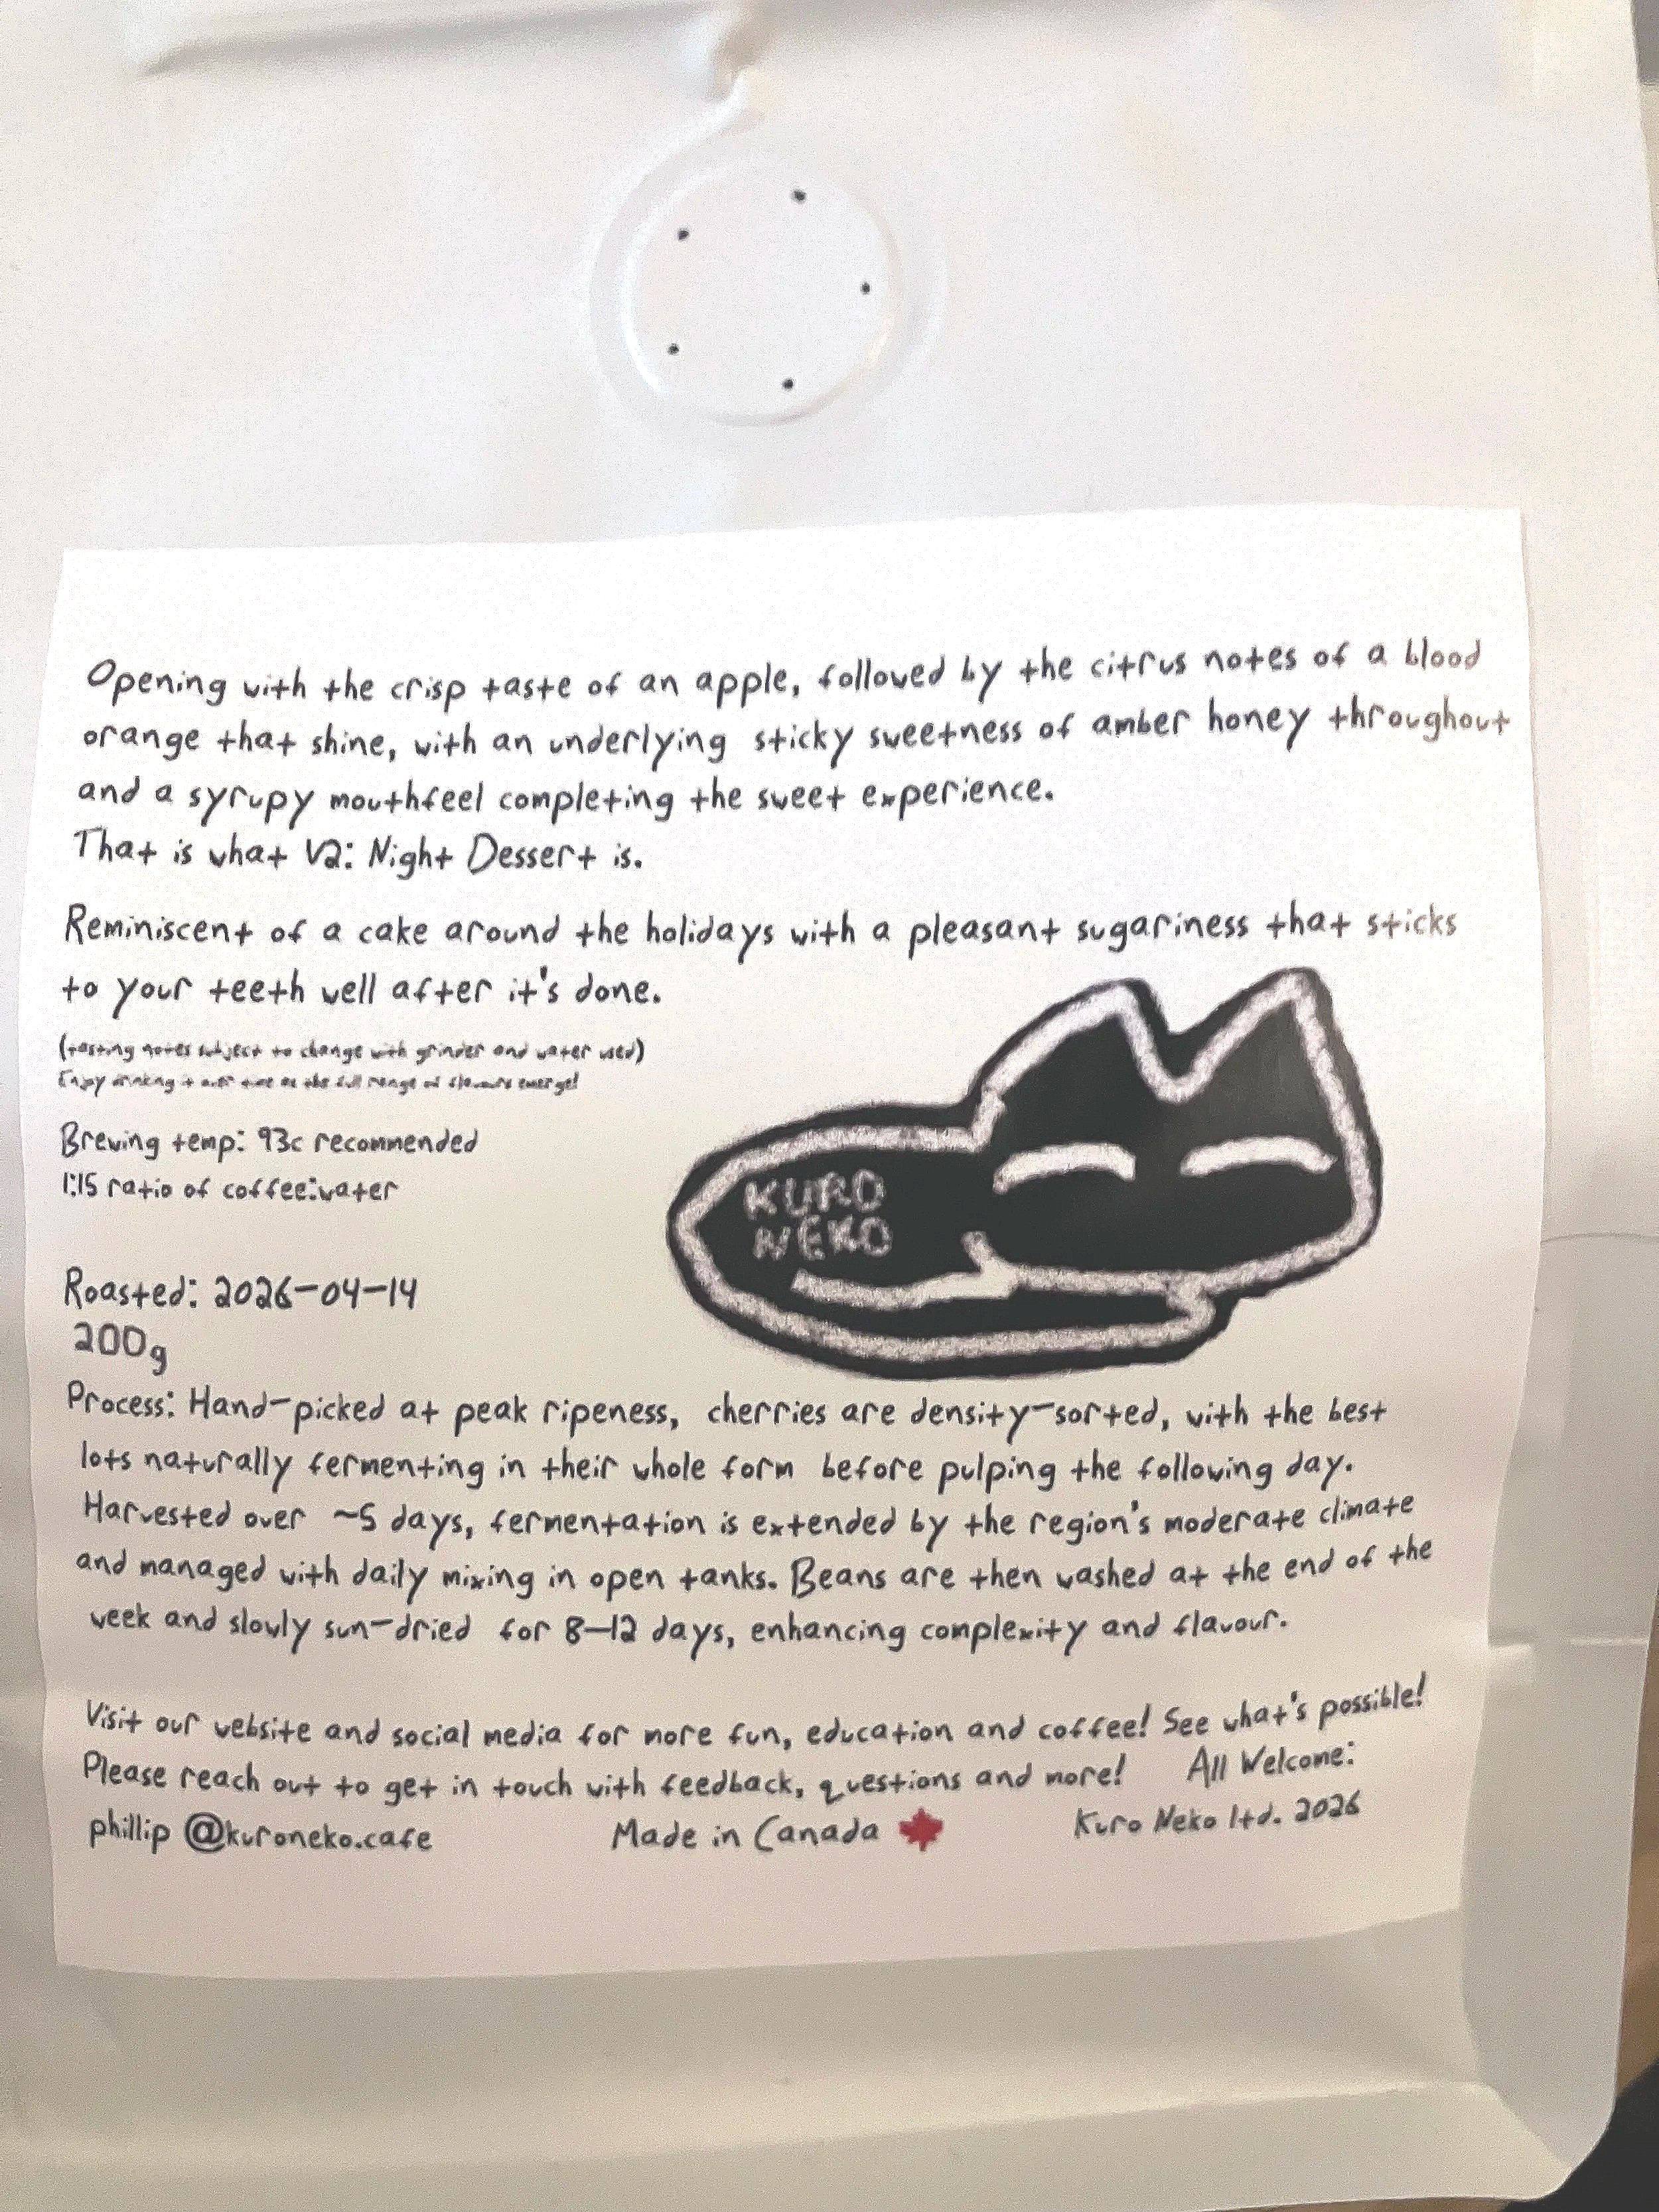 Opening with the crisp taste of an apple, followed by the citrus notes of a blood
orange that shine, with an underlying sticky sweetness of amber honey throughout
and a syrupy mouthfeel completing the sweet experience.
That is what V2: Night Dessert is.
Reminiscent of a cake around the holidays with a pleasant sugariness that sticks
to your teeth well after it's done.
(tasting notes subject to change with grinder and water used)
Enjoy drinking it over time as the full range of flavours emerge!
Brewing temp: 93c recommended
1:15 ratio of coffee:water
KURO
NEKO
Roasted: 2026-04-14
200g
Process: Hand-picked at peak ripeness, cherries are density-sorted, with the best
lots naturally fermenting in their whole form before pulping the following day.
Harvested over ~5 days, fermentation is extended by the region's moderate climate
and managed with daily mixing in open tanks. Beans are then washed at the end of the
week and slowly sun-dried for 8-12 days, enhancing complexity and flavour.
Visit our website and social media for more fun, education and coffee! See what's possible!
Please reach out to get in touch with feedback, questions and more! All Welcome:
phillip @kuroneko.cafe Made in Canada Kuro Neko ltd. 2026